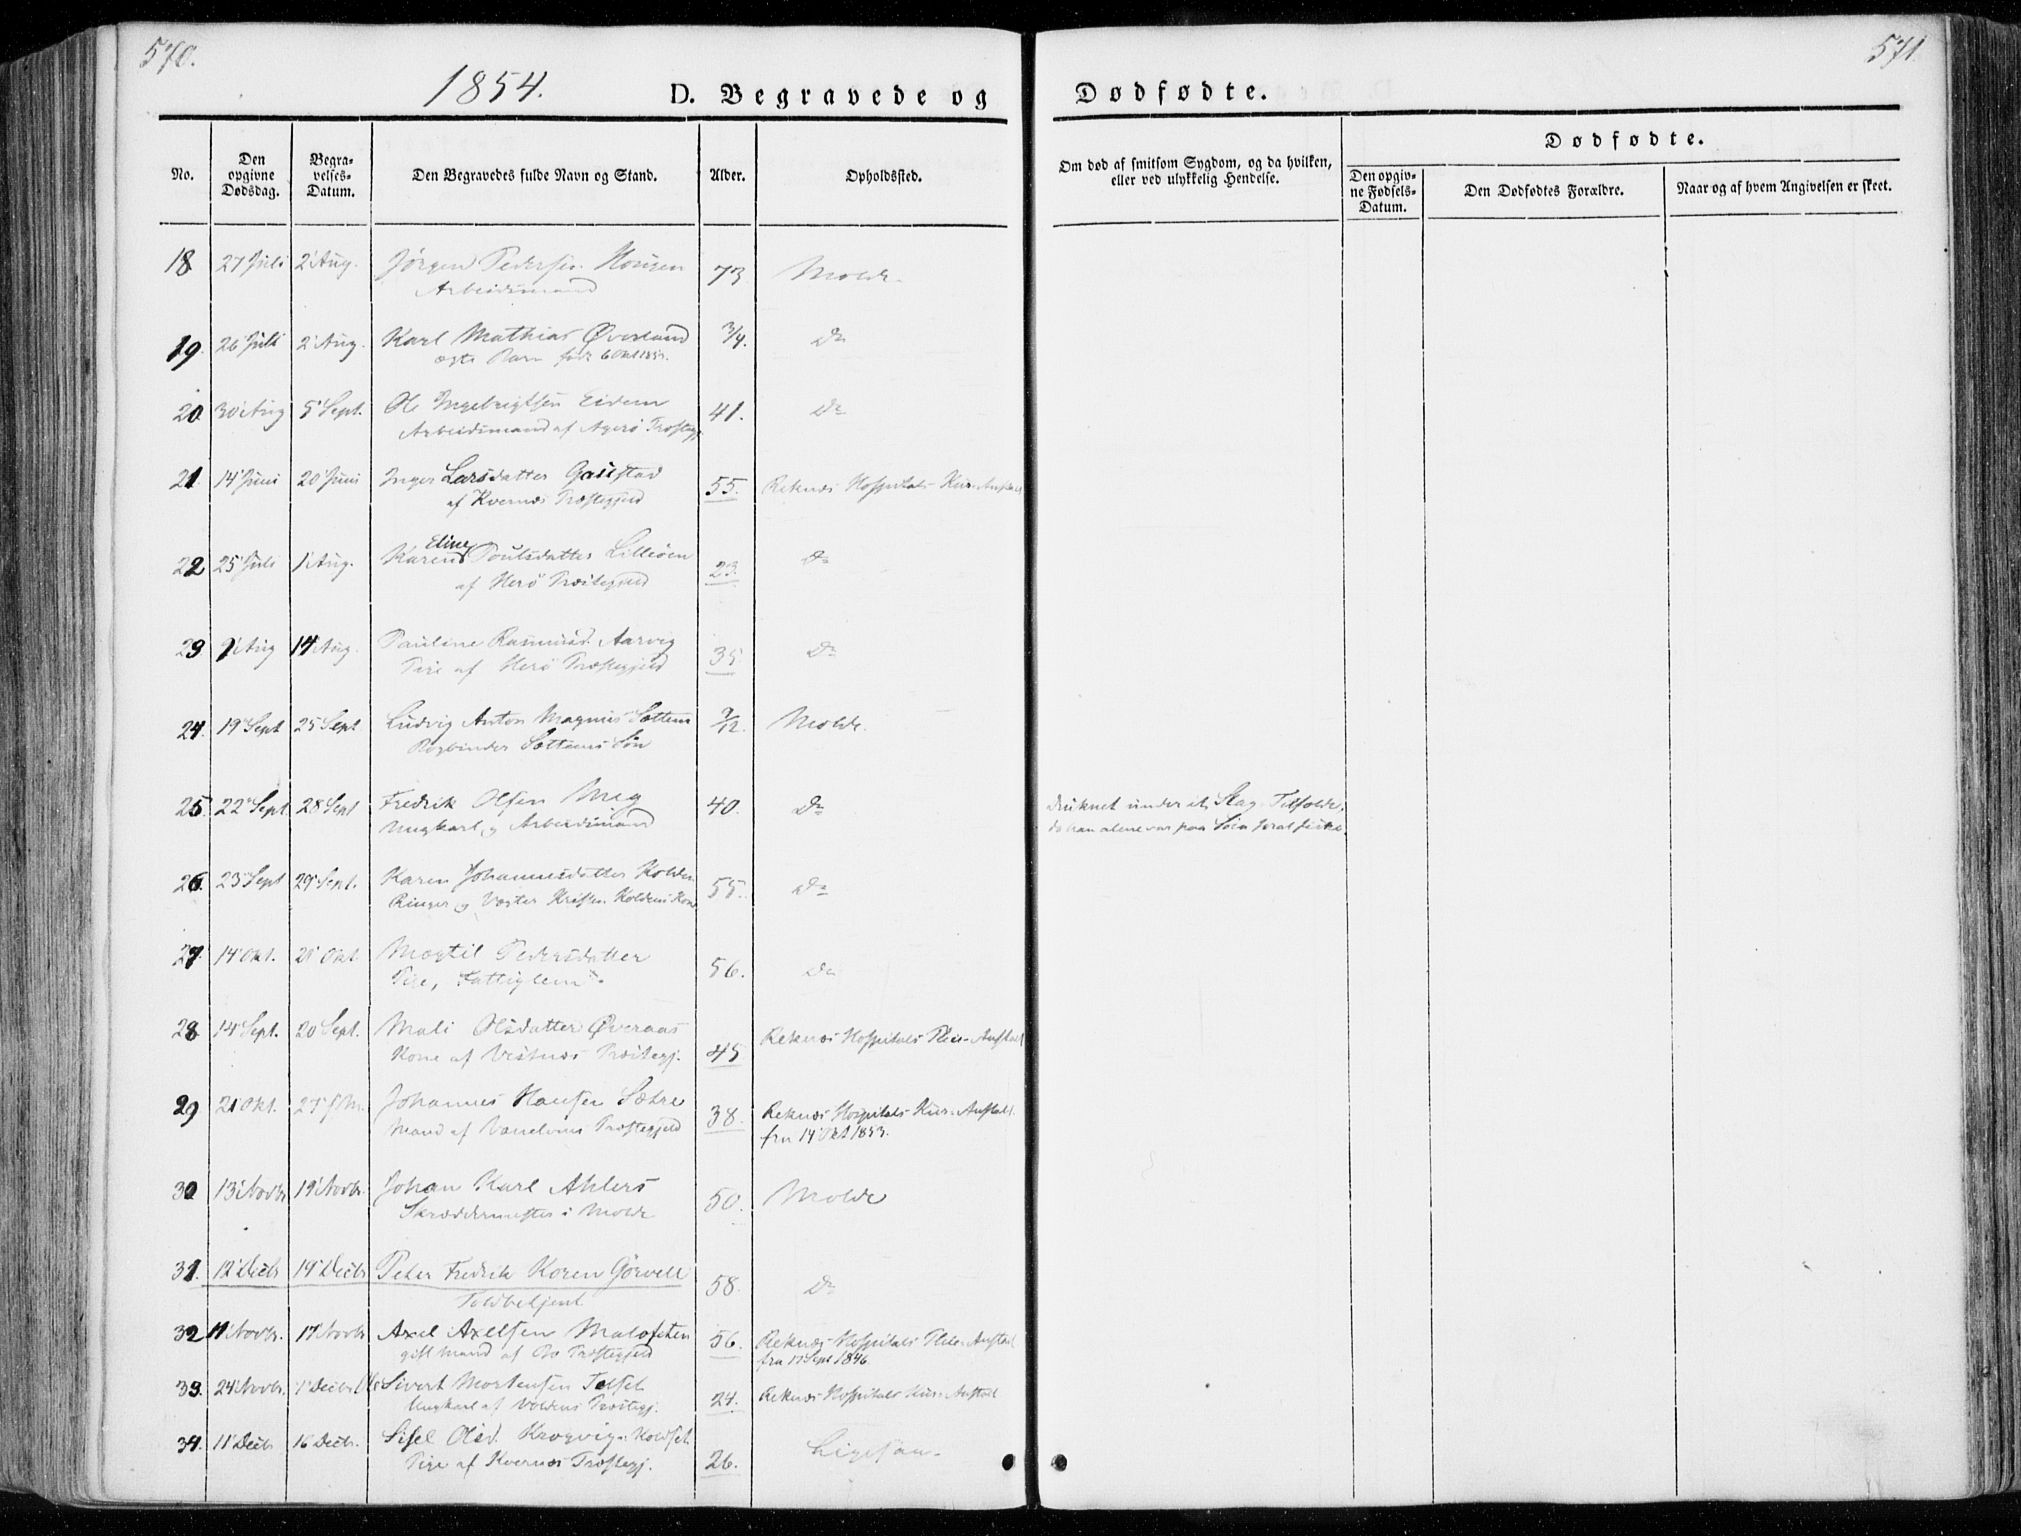 570.
1854.
D. Begravede og
No.
Den opgivne Dødsdag.
Begra-velses-Datum.
Den Begravedes fulde Navn og Stand.
Alder.
Opholdssted.
18 27 Juli 2 Aug. Jörgen Pedersen 73. Molde.
Arbeidsmand
19. 26 Juli 2 Aug. Karl Mathias Øverland 3/4. Do
ægte Barn født 6 Okt 1853.
20 30 Aug 5 Sept. Ole Ingebrigtsen Eidem 41. Do
Arbeidsmand af Agerö Præstegj
21. 14 Juni 20 Juni Inger Larsdatter Gaustad 55. Reknæs Hospitals Kur-Anstalt
af Kvernæs Præstegjeld
Eline
22 25 Juli 1 Aug. Karen Poulsdatter Lilleöen 23. Do
af Herö Præstegjeld
23 Aug 14 Aug. Pauline Rasmusd. Aarvig 35. Do
Pige af Herö Præstegjeld
24. 19 Sept 25 Sept Ludvig Anton Magnus Sættem /12. Molde.
Bogbinder Sættems Sön
25. 22 Sept 28 Sept Fredrik Olsen 40. Do
Ungkarl og Arbeidsmand
26. 23 Sept 29 Sept. Karen Johannesdatter Holden 55. Do
Ringer og Vægter Holdens Kone
27. 14 Okt. 21 Okt. Magtil Pedersdatter 56. Do
Pige, Fattiglem.
28 14 Sept. 20 Sept. Mali Olsdatter Øveraas 45 Reknæs Hospitals Pleie-Anstalt
Kone af Vestnæs Præstegj.
29 21 Okt. 27 Johannes Hansen Sætre 38. Reknæs Hospitals Kur-Anstalt
Mand af Vanelvens Præstegjeld fra 14 Okt 1853.
30 13 Novbr 19 Novbr. Johan Karl Ahlers 50. Molde
Skræddermester i Molde
31. 12 Decbr 19 Decbr Peter Fredrik Koren Görvell 58. Do
Toldbetjent
32 11 Novbr. 17 Novbr Axel Axelsen 56. Reknæs Hospitals Pleie-Anstalt
gift Mand af Bø Præstegjeld fra 17 Sept 1846.
33. 24 Novbr. 1 Decbr. Sivert Mortensen 24. Reknæs Hospitals Kur-Anstalt
Ungkarl af Voldens Præstegj.
34. 11 Decbr 16 Decbr. Sisel Olsd. Krogvig 26. Ligesaa.
Pige af Kvernæs Præstegj.
571.
Dødfødte.
Om død af smitsom Sygdom, og da hvilken, eller ved ulykkelig Hendelse.
Dødfødte.
Den opgiv-ne Fødsels-Datum.
Den Dødfødtes Forældre.
Naar og af hvem Angivelsen er skeet.
druknet under et Slag. Tilfælde,
da han alene var paa Söen for at fiske.